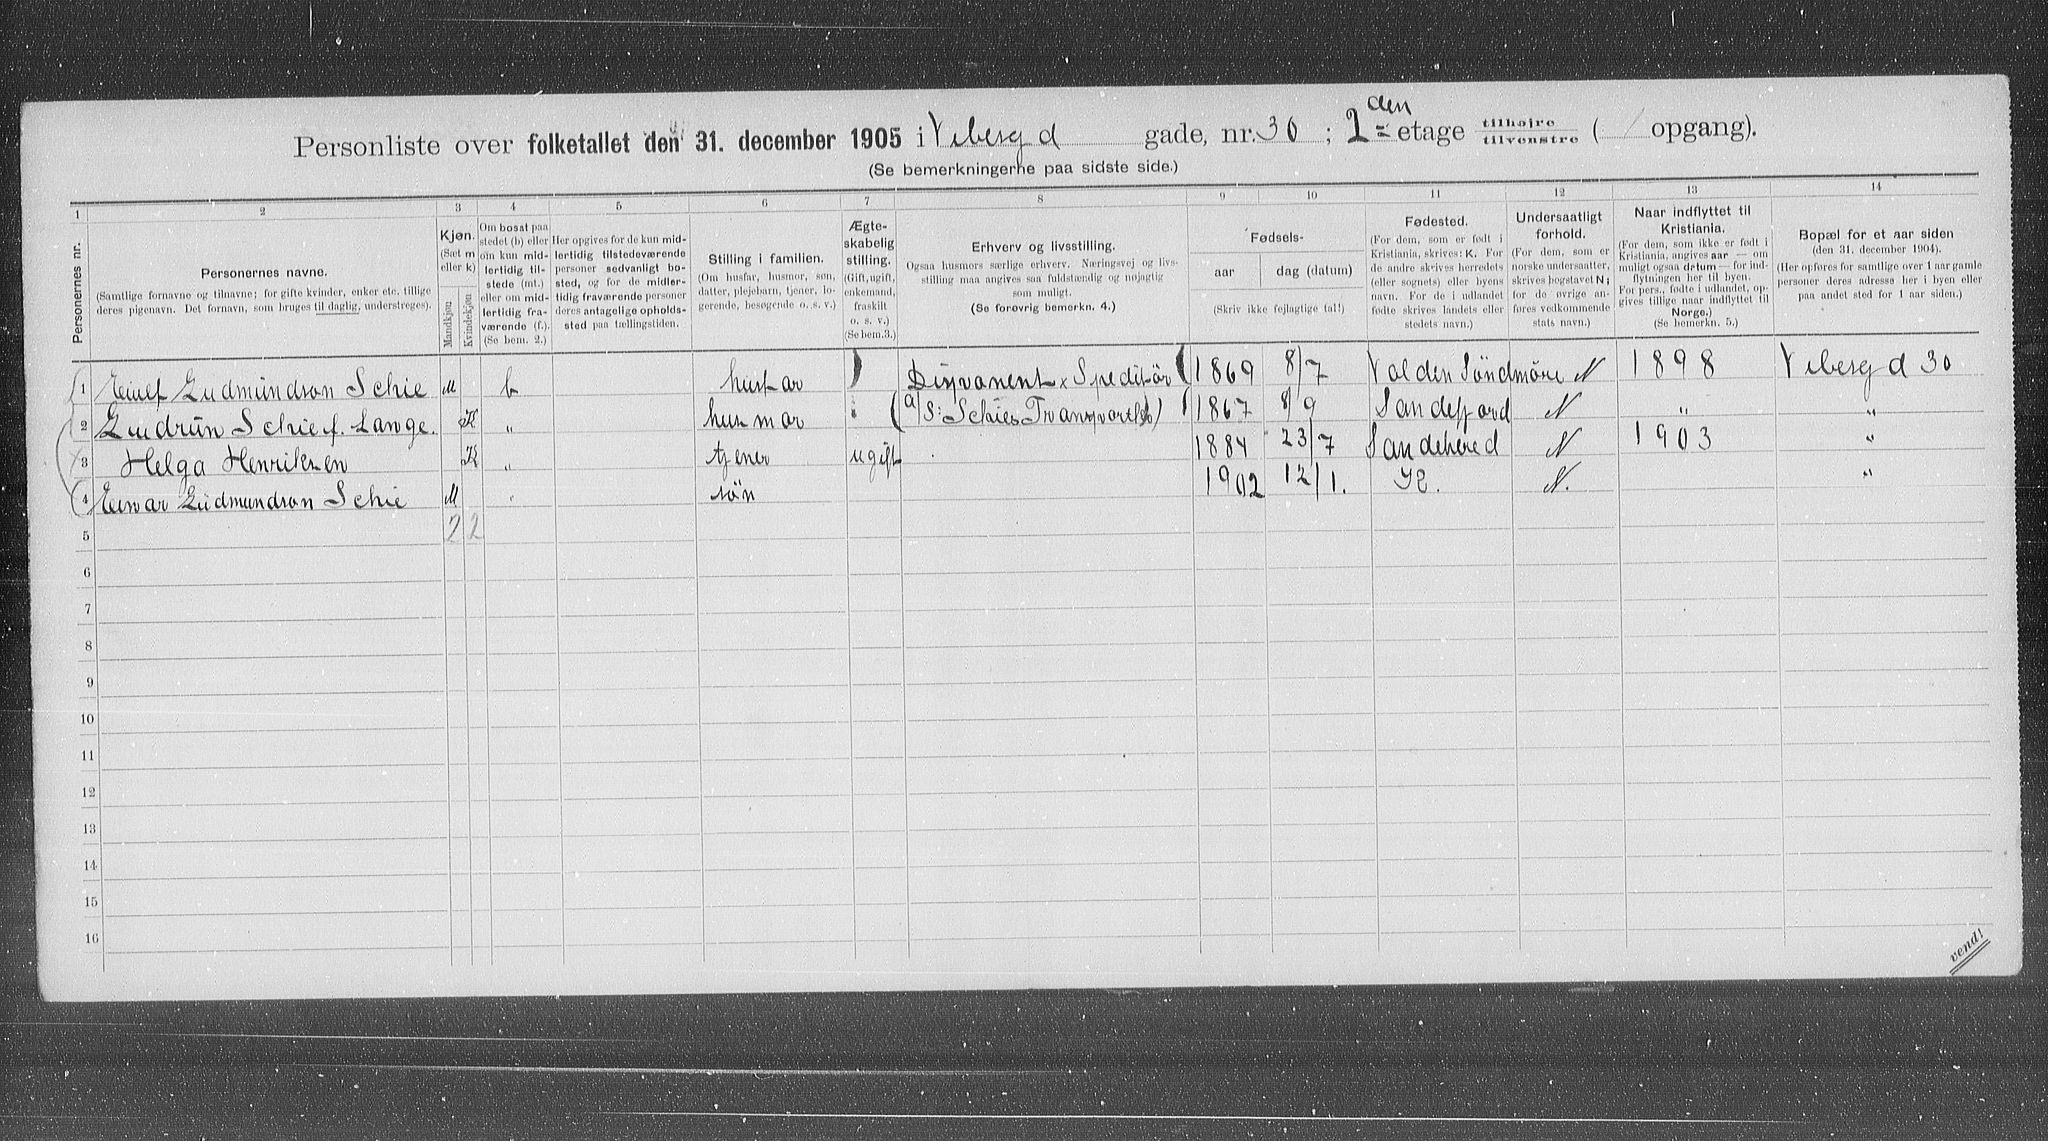 Personliste over folketallet den 31. december 1905 i Vibesgd gade, nr. 30; 2den etage tilhøjre tilvenstre ( / opgang).
(Se bemerkningerne paa sidste side.)
1 2 3 4 5 6 7 8 9 10 11 12 13 14
Personernes nr.
Personernes navne.
(Samtlige fornavne og tilnavne; for gifte kvinder, enker etc. tillige deres pigenavn. Det fornavn, som bruges til daglig, understreges).
Kjøn.
(Sæt m eller k)
Mandkjøn
Kvindekjøn
Om bosat paa stedet (b) eller om kun midlertidig tilstede (mt.) eller om midlertidig fraværende (f.).
(Se bem. 2.)
Her opgives for de kun midlertidig tilstedeværende personer sedvanligt bosted, og for de midlertidig fraværende personer deres antagelige opholdssted paa tællingstiden.
Stilling i familien.
(Om husfar, husmor, søn, datter, plejebarn, tjener, logerende, besøgende o. s. v.)
Ægteskabelig stilling.
(Gift, ugift, enkemand, fraskilt o. s. v.)
(Se bem. 3.)
Erhverv og livsstilling.
Ogsaa husmors særlige erhverv. Næringsvej og livsstilling maa angives saa fuldstændig og nøjagtig som muligt.
(Se forøvrig bemerkn. 4.)
Fødsels-
aar
dag (datum)
(Skriv ikke fejlagtige tal!)
Fødested.
(For dem, som er født i Kristiania, skrives: K. For de andre skrives herredets (eller sognets) eller byens navn. For de i udlandet fødte skrives landets eller stedets navn.)
Undersaatligt forhold.
(For dem, som er norske undersaatter, skrives bogstavet N; for de øvrige anføres vedkommende stats navn.)
Naar indflyttet til Kristiania.
(For dem, som ikke er født i Kristiania, angives aar — om muligt ogsaa datum — for indflytningen her til byen. For pers., fødte i udlandet, opgives tillige naar indflyttet til Norge.)
(Se bemerkn. 5.)
Bopæl for et aar siden
(den 31. december 1904).
(Her opføres for samtlige over 1 aar gamle personer deres adresse her i byen eller paa andet sted for 1 aar siden.)
1 Gudmundson Schie M b husfar Disponent x Speditør 1869 8/7 Valden Søndmøre N 1898 Vibesgd 30
2 Gudrun Schie f. Lange. K " husmor (a/s: Schies Transport 1867 8/9 Sandefjord N " "
3 Helga Henriksen K " tjener ugift 1884 23/7 Sandehered N 1903 "
4 Einar Gudmundson Schie M " søn 1902 12/1. K. N. "
5 2 2
6
7
8
9
10
11
12
13
14
15
16
vend!